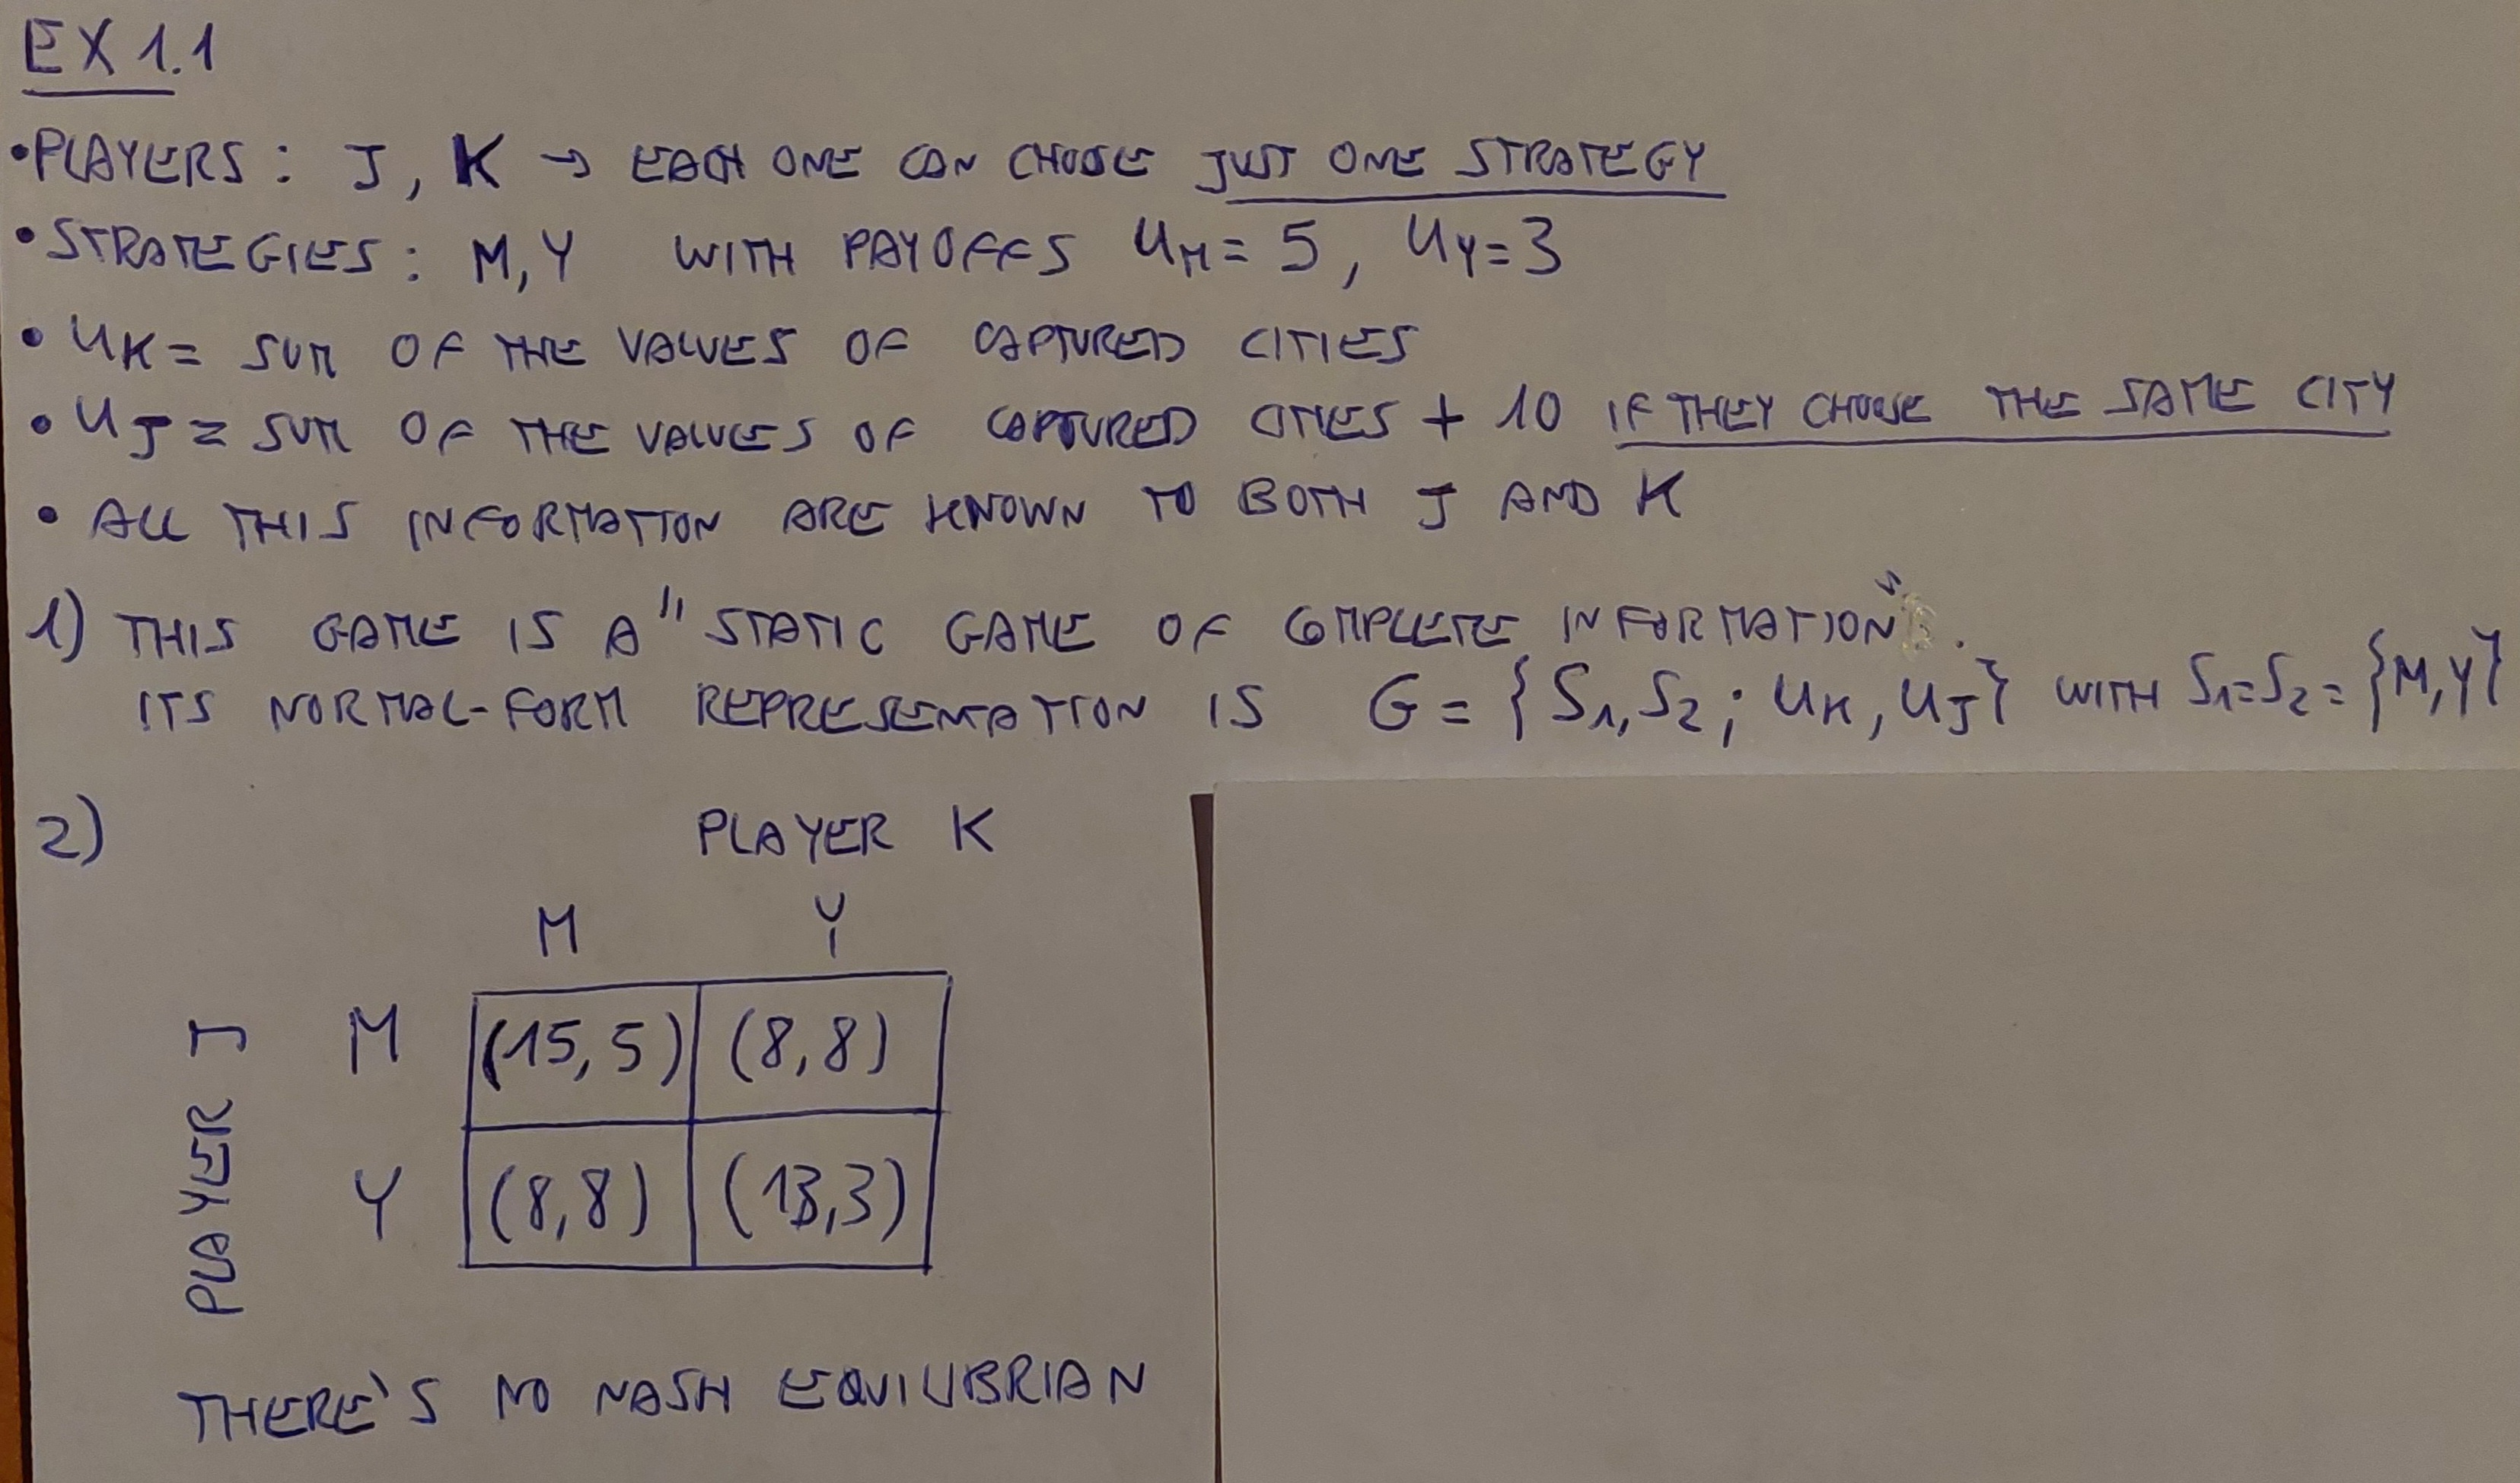 EX 1.1
• PLAYERS: J, K → EACH ONE CAN CHOOSE JUST ONE STRATEGY
• STRATEGIES: M, Y WITH PAYOFFS UM = 5, UY = 3
• UK = SUM OF THE VALUES OF CAPTURED CITIES
• UJ = SUM OF THE VALUES OF CAPTURED CITIES + 10 IF THEY CHOOSE THE SAME CITY
• ALL THIS INFORMATION ARE KNOWN TO BOTH J AND K
1) THIS GAME IS A "STATIC GAME OF COMPLETE INFORMATION".
ITS NORMAL-FORM REPRESENTATION IS G = {S1, S2; UK, UJ} WITH S1=S2= {M,Y}
2) PLAYER K
M Y
PLAYER J
M (15, 5) (8,8)
Y (8,8) (13,3)
THERE'S NO NASH EQUILIBRIAN